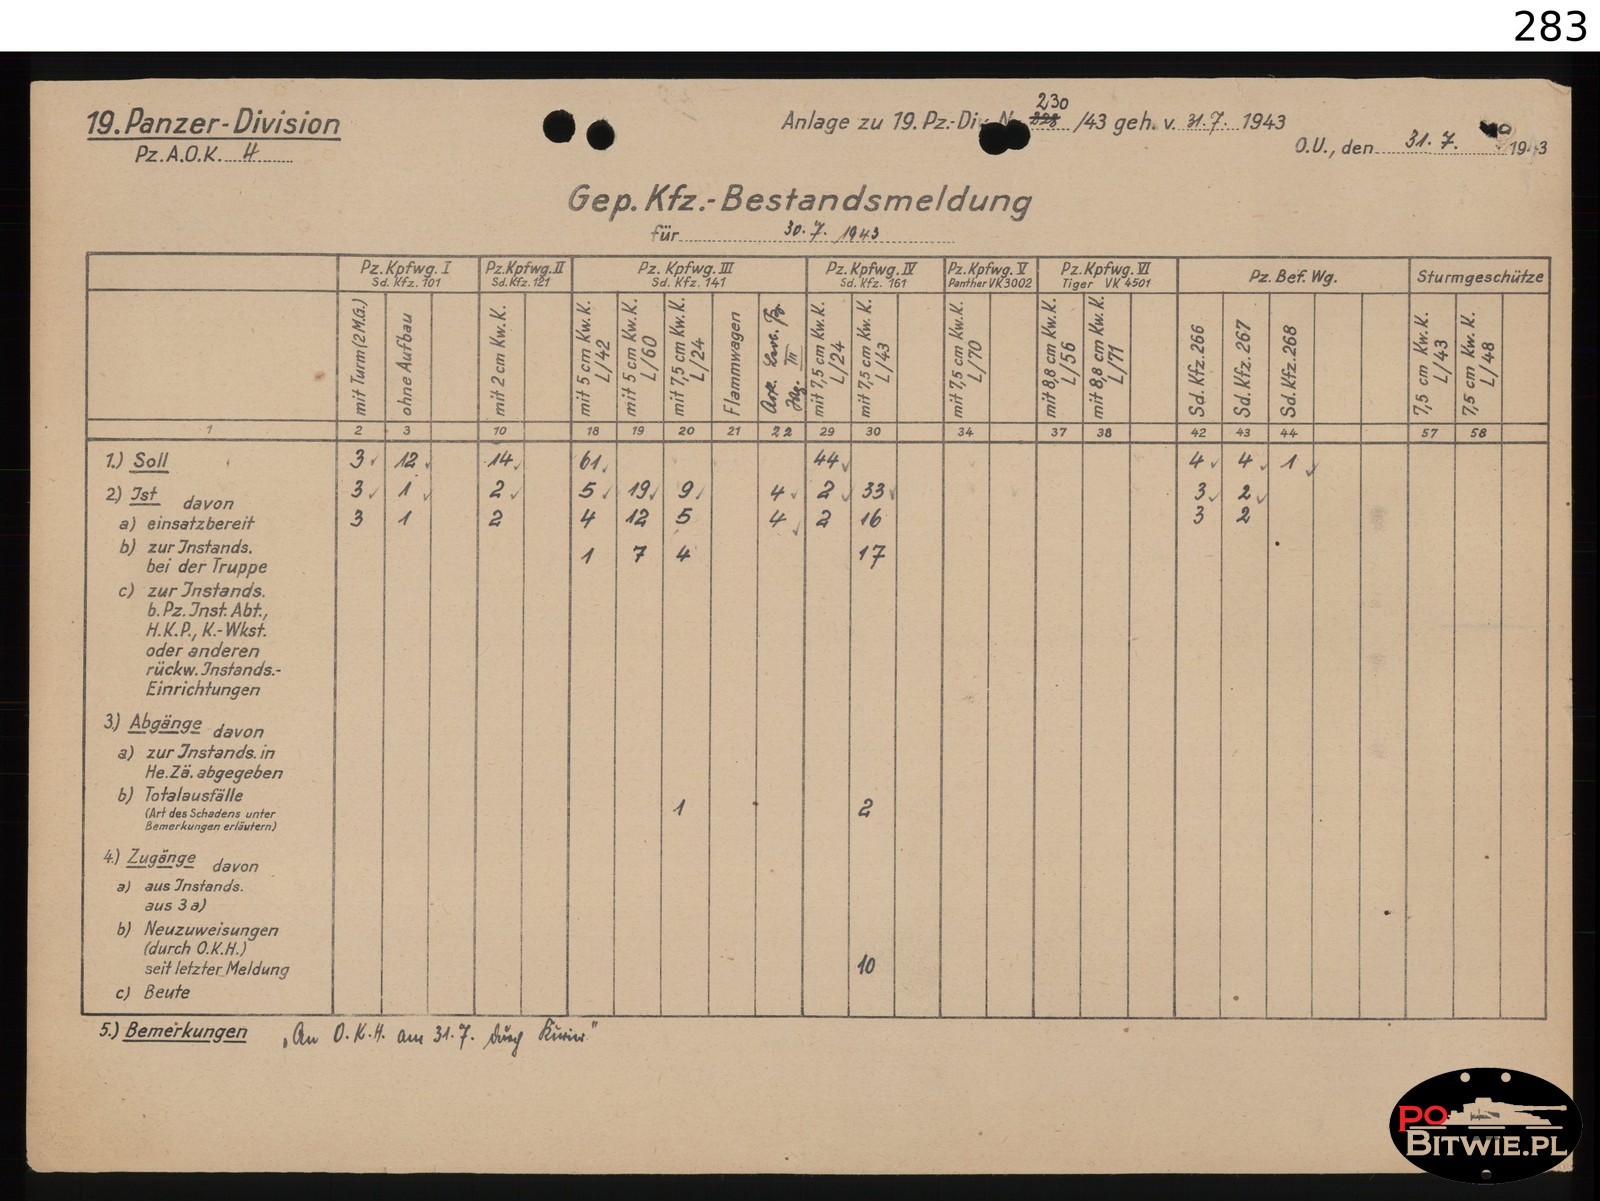 283
19. Panzer-Division
Pz.A.O.K. 4
Anlage zu 19. Pz.-Div. N 230 /43 geh. v. 31.7. 1943
O.U., den 31. 7. 1943
Gep. Kfz.-Bestandsmeldung
für 30. 7. 1943
Pz. Kpfwg. I Pz.Kpfwg. II Pz. Kpfwg. III Pz. Kpfwg. IV Pz. Kpfwg. V Pz. Kpfwg. VI Pz. Bef. Wg. Sturmgeschütze
Sd. Kfz. 101 Sd. Kfz. 121 Sd. Kfz. 141 Sd. Kfz. 161 Panther VK 3002 Tiger VK 4501
mit Turm (2 M.G.)
ohne Aufbau
mit 2 cm Kw. K.
mit 5 cm Kw. K. L/42
mit 5 cm Kw. K. L/60
mit 7,5 cm Kw. K. L/24
Flammwagen
III
mit 7,5 cm Kw. K. L/24
mit 7,5 cm Kw. K. L/43
mit 7,5 cm Kw. K. L/70
mit 8,8 cm Kw. K. L/56
mit 8,8 cm Kw. K. L/71
Sd. Kfz. 266
Sd. Kfz. 267
Sd. Kfz. 268
7,5 cm Kw. K. L/43
7,5 cm Kw. K. L/48
1 2 3 10 18 19 20 21 22 29 30 34 37 38 42 43 44 57 58
1.) Soll 3 12 14 61 44 4 4 1
2.) Ist davon 3 1 2 5 19 9 4 2 33 3 2
a) einsatzbereit 3 1 2 4 12 5 4 2 16 3 2
b) zur Instands.
bei der Truppe 1 7 4 17
c) zur Instands.
b. Pz. Inst. Abt.,
H.K.P., K.-Wkst.
oder anderen
rückw. Instands.-
Einrichtungen
3.) Abgänge davon
a) zur Instands. in
He. Zä. abgegeben
b) Totalausfälle 1 2
(Art des Schadens unter
Bemerkungen erläutern)
4.) Zugänge davon
a) aus Instands.
aus 3 a)
b) Neuzuweisungen
(durch O.K.H.)
seit letzter Meldung 10
c) Beute
5.) Bemerkungen „An O.K.H. am 31.7. durch Kurier"
PO
BITWIE.PL